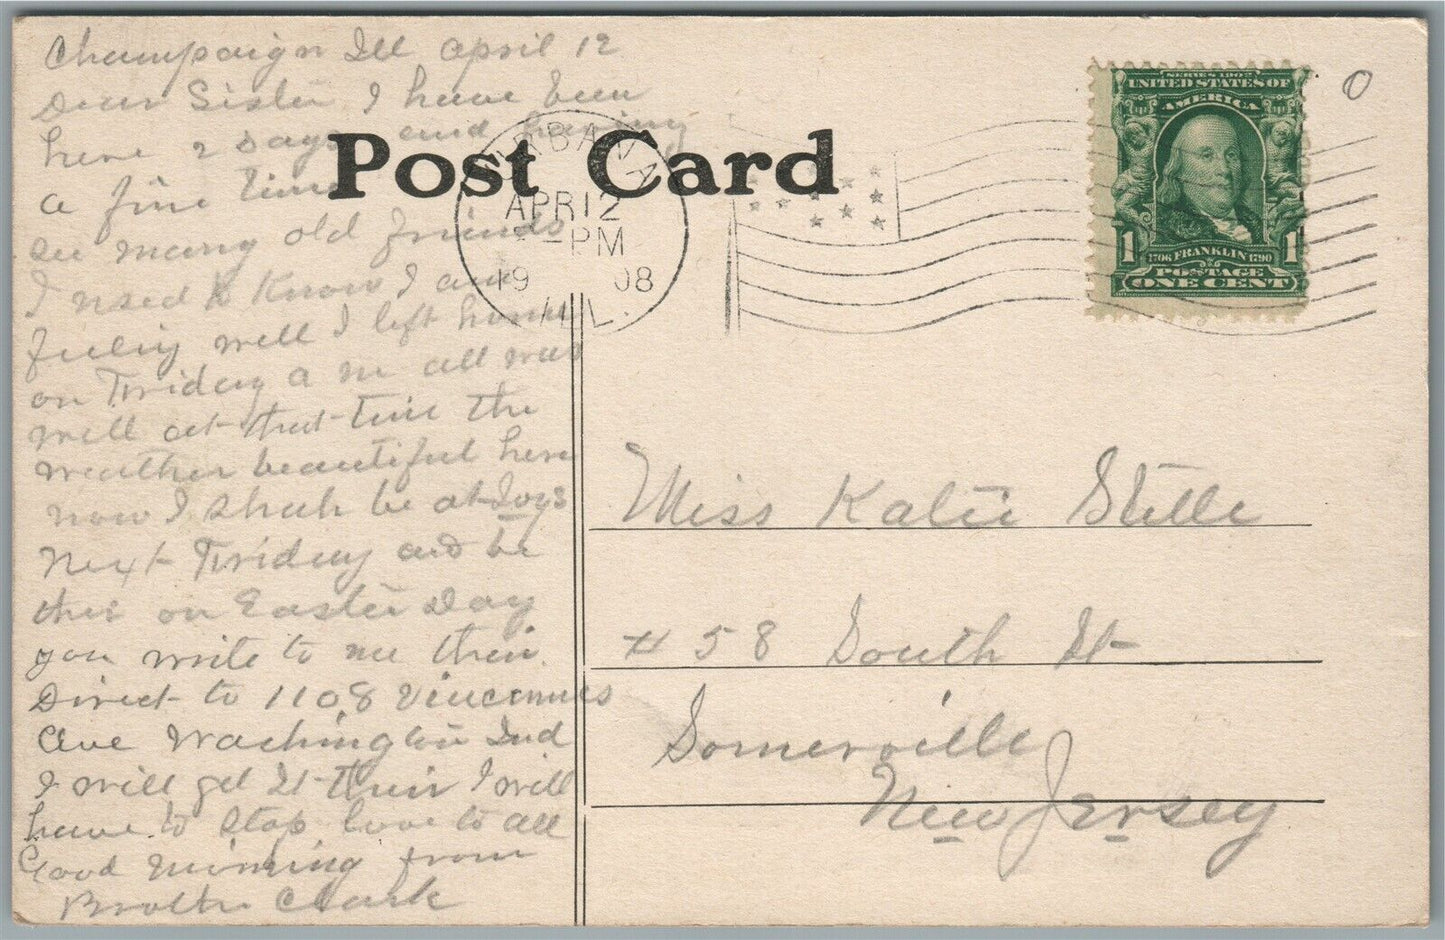 Champaign Ill April 12
Dear Sister I have been
here 2 days and having
a fine time
see many old friends
I used to Know I am
feeling well I left home
on Friday a m all was
well at that time the
weather beautiful here
now I shall be at
Next Friday and be
their on Easter Day
you write to me their
Direct to 1108 Vincennes
Ave Washington Ind
I will get It their I will
have to Stop love to all
Good Morning from
Brother Clark
Post Card
URBANA
APR 12
-PM
19 08
ILL.
SERIES 1902
UNITED STATES OF
AMERICA
1 1
1706 FRANKLIN 1790
POSTAGE
ONE CENT
O
Miss Katie Stelle
# 58 South St
Somerville
New Jersey